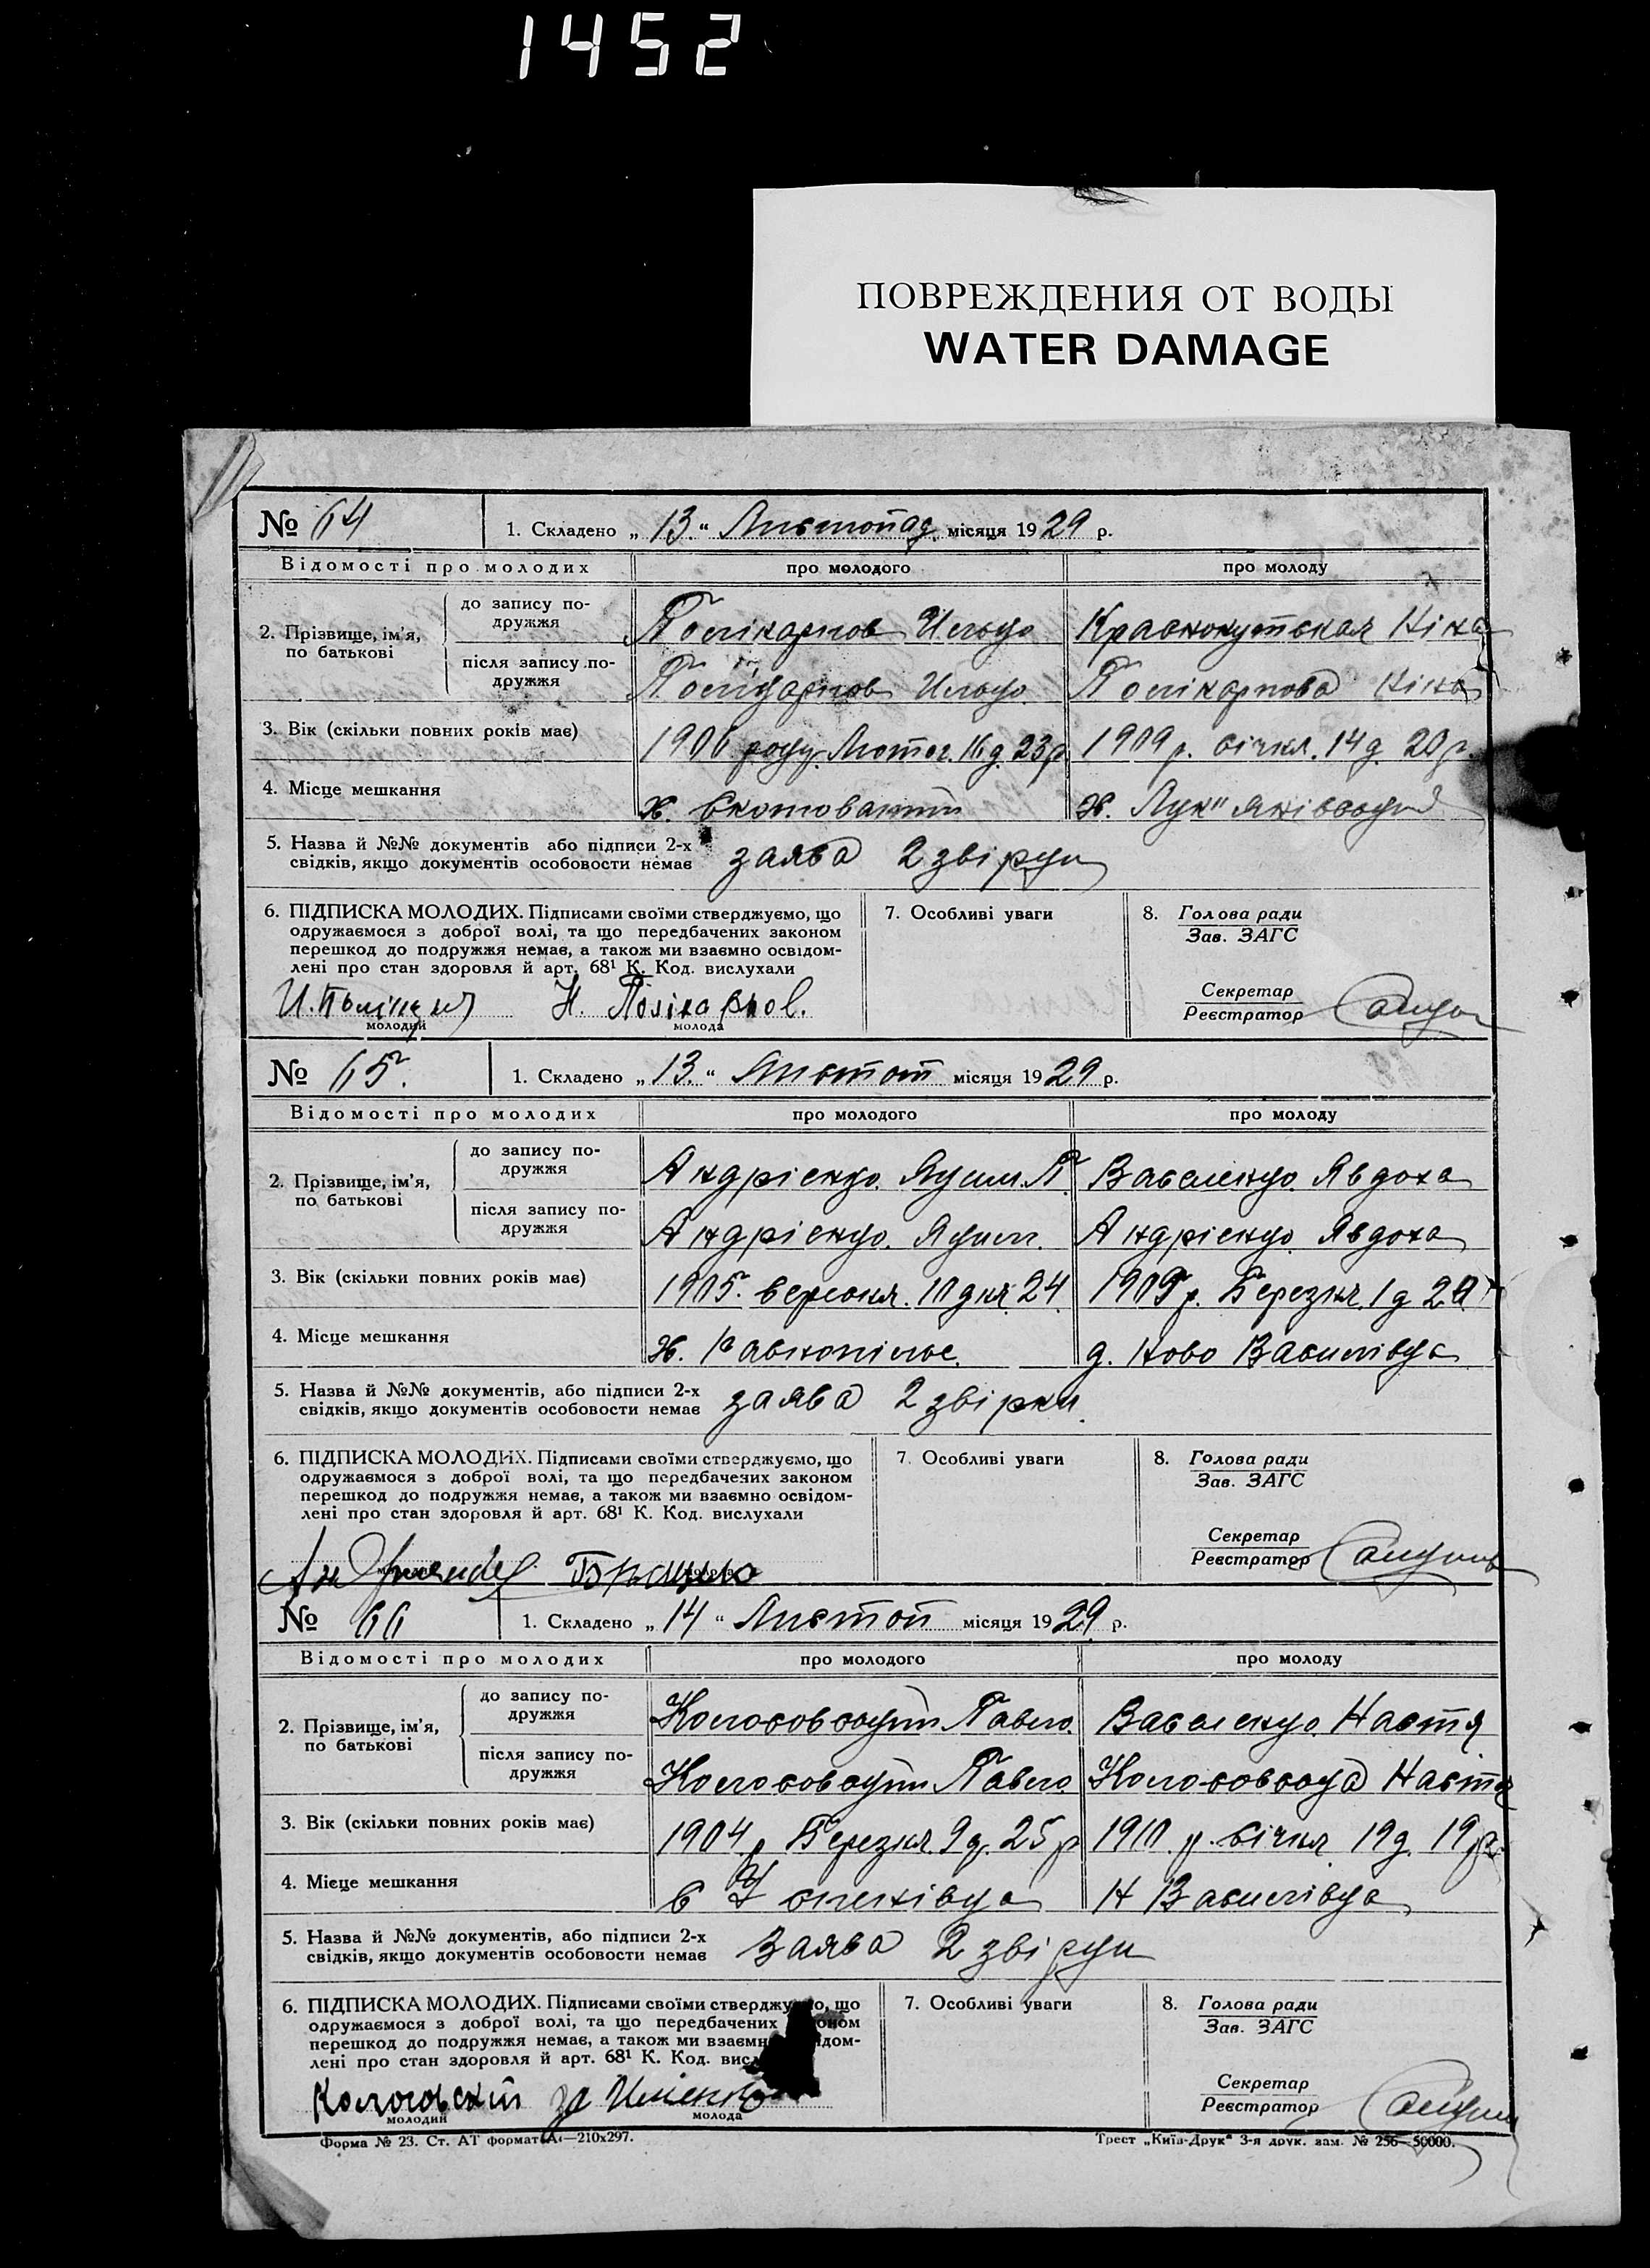 1452
ПОВРЕЖДЕНИЯ ОТ ВОДЫ
WATER DAMAGE
№ 64 1. Складено „13.“ Листопад місяця 1929 р.
Відомості про молодих про молодого про молоду
2. Прізвище, ім'я, по батькові
до запису подружжя Полікарпов Ілько Краснокутская Ніна
після запису подружжя Полікарпов Ілько Полікарпова Ніна
3. Вік (скільки повних років має) 1906 року Лютог. 16 д. 23 р. 1909 р. січня. 14 д. 20 р.
4. Місце мешкання х. х.
5. Назва й №№ документів або підписи 2-х
свідків, якщо документів особовости немає заява 2 звірки
6. ПІДПИСКА МОЛОДИХ. Підписами своїми стверджуємо, що
одружаємося з доброї волі, та що передбачених законом
перешкод до подружжя немає, а також ми взаємно освідом-
лені про стан здоровля й арт. 68¹ К. Код. вислухали
Н. Полікарпов.
молодий молода
7. Особливі уваги
8. Голова ради
Зав. ЗАГС
Секретар
Реєстратор
№ 65. 1. Складено „13.“ Листоп місяця 1929 р.
Відомості про молодих про молодого про молоду
2. Прізвище, ім'я, по батькові
до запису подружжя Андрієнко Яким П. Василенко Явдоха
після запису подружжя Андрієнко Яким. Андрієнко Явдоха
3. Вік (скільки повних років має) 1905. вересня. 10 дня 24 1909 р. Березня 1 д 20
4. Місце мешкання х. Равнопілье. д. Ново Василівка
5. Назва й №№ документів, або підписи 2-х
свідків, якщо документів особовости немає заява 2 звірки
6. ПІДПИСКА МОЛОДИХ. Підписами своїми стверджуємо, що
одружаємося з доброї волі, та що передбачених законом
перешкод до подружжя немає, а також ми взаємно освідом-
лені про стан здоровля й арт. 68¹ К. Код. вислухали
7. Особливі уваги
8. Голова ради
Зав. ЗАГС
Секретар
Реєстратор
№ 66 1. Складено „14“ Листоп місяця 1929 р.
Відомості про молодих про молодого про молоду
2. Прізвище, ім'я, по батькові
до запису подружжя Колосовский Павло Василенко Настя
після запису подружжя Колосовский Павло Колосовська Настя
3. Вік (скільки повних років має) 1904 р Березня. 9 д. 25 р 1910 р. січня 19 д. 19 р.
4. Місце мешкання Н Василівка
5. Назва й №№ документів, або підписи 2-х
свідків, якщо документів особовости немає Заява 2 звірки
6. ПІДПИСКА МОЛОДИХ. Підписами своїми стверджуємо, що
одружаємося з доброї волі, та що передбачених законом
перешкод до подружжя немає, а також ми взаємно освідом-
лені про стан здоровля й арт. 68¹ К. Код.
за
молодий молода
7. Особливі уваги
8. Голова ради
Зав. ЗАГС
Секретар
Реєстратор
Форма № 23. Ст. АТ формат А4—210х297.
Трест „Київ-Друк“ 3-я друк. зам. № 256—50000.